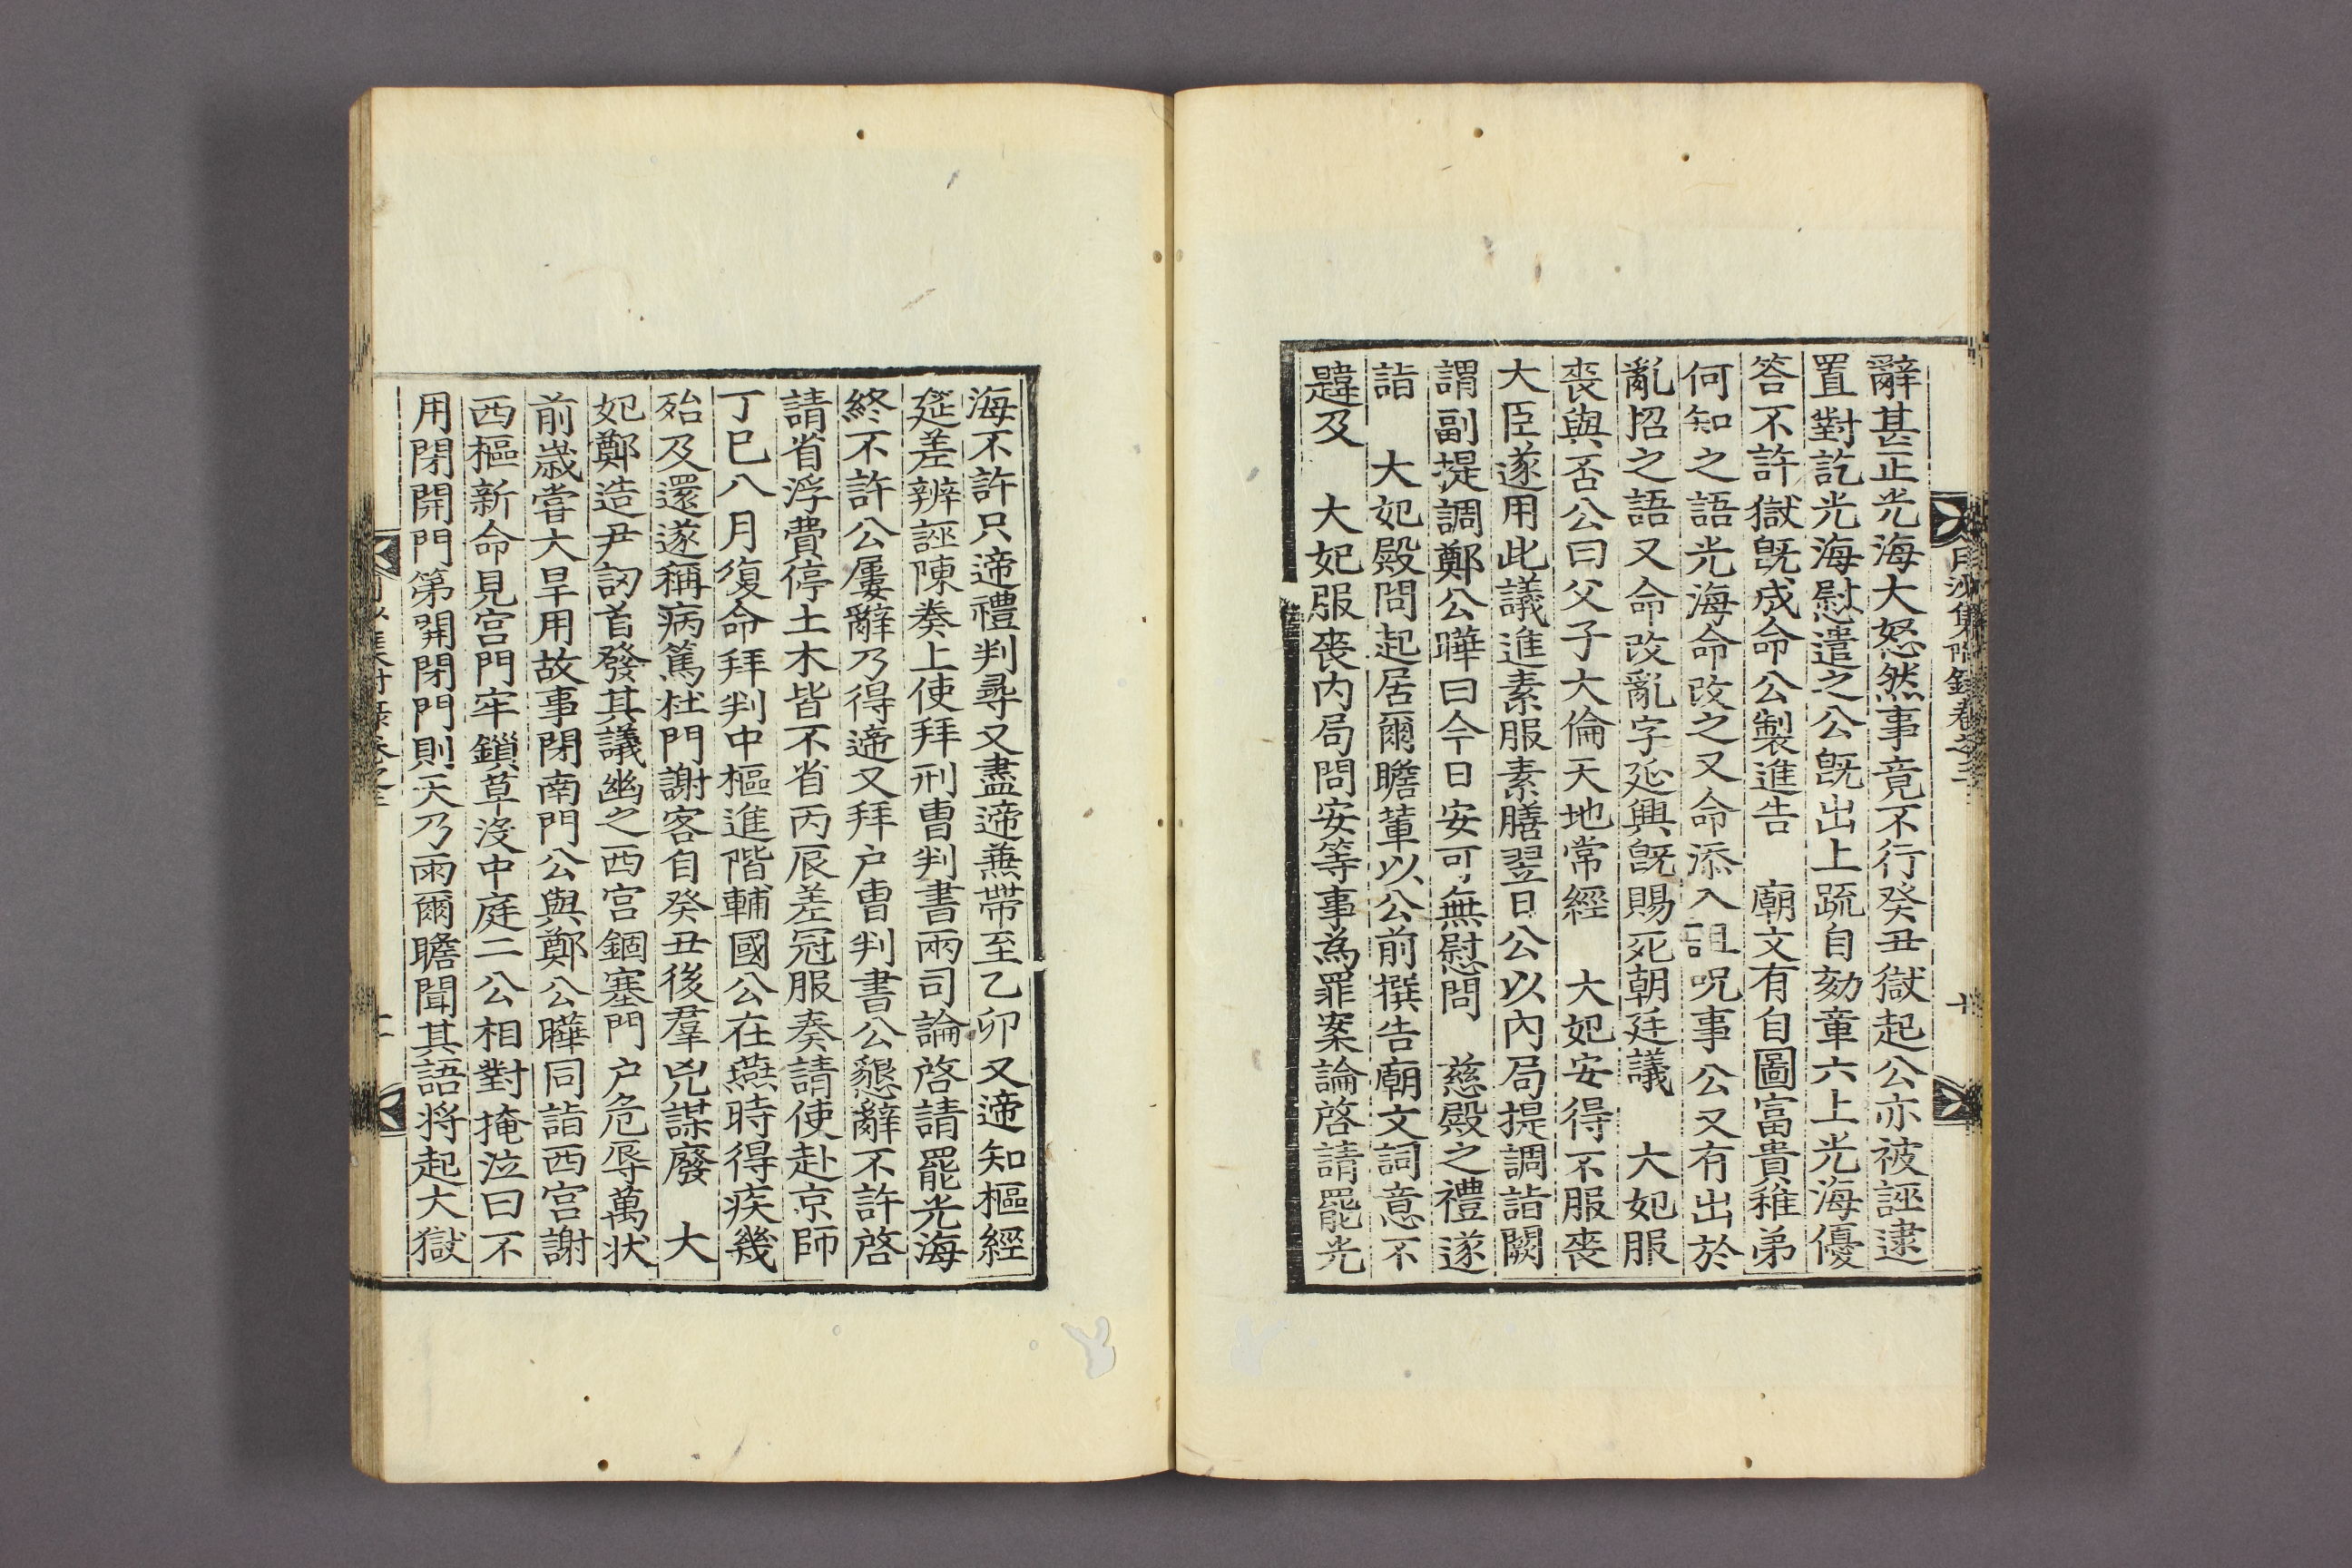 月沙集附錄卷之三
十
辭甚正光海大怒然事竟不行癸丑獄起公亦被誣逮
置對訖光海慰遣之公旣出上疏自劾章六上光海優
答不許獄旣成命公製進告 廟文有自圖富貴稚弟
何知之語光海命改之又命添入詛呪事公又有出於
亂招之語又命改亂字延興旣賜死朝廷議 大妃服
喪與否公曰父子大倫天地常經 大妃安得不服喪
大臣遂用此議進素服素膳翌日公以內局提調詣闕
謂副提調鄭公曄曰今日安可無慰問 慈殿之禮遂
詣 大妃殿問起居爾瞻輩以公前撰告廟文詞意不
韙及 大妃服喪內局問安等事爲罪案論啓請罷光
海不許只遆禮判尋又盡遆兼帶至乙卯又遆知樞經
筵差辨誣陳奏上使拜刑曹判書兩司論啓請罷光海
終不許公屢辭乃得遆又拜户曹判書公懇辭不許啓
請省浮費停土木皆不省丙辰差冠服奏請使赴京師
丁巳八月復命拜判中樞進階輔國公在燕時得疾幾
殆及還遂稱病篤杜門謝客自癸丑後羣兇謀廢 大
妃鄭造尹訒首發其議幽之西宮錮塞門户危辱萬狀
前歲嘗大旱用故事閉南門公與鄭公曄同詣西宮謝
西樞新命見宮門牢鎖草沒中庭二公相對掩泣曰不
用閉開門第開閉門則天乃雨爾瞻聞其語將起大獄